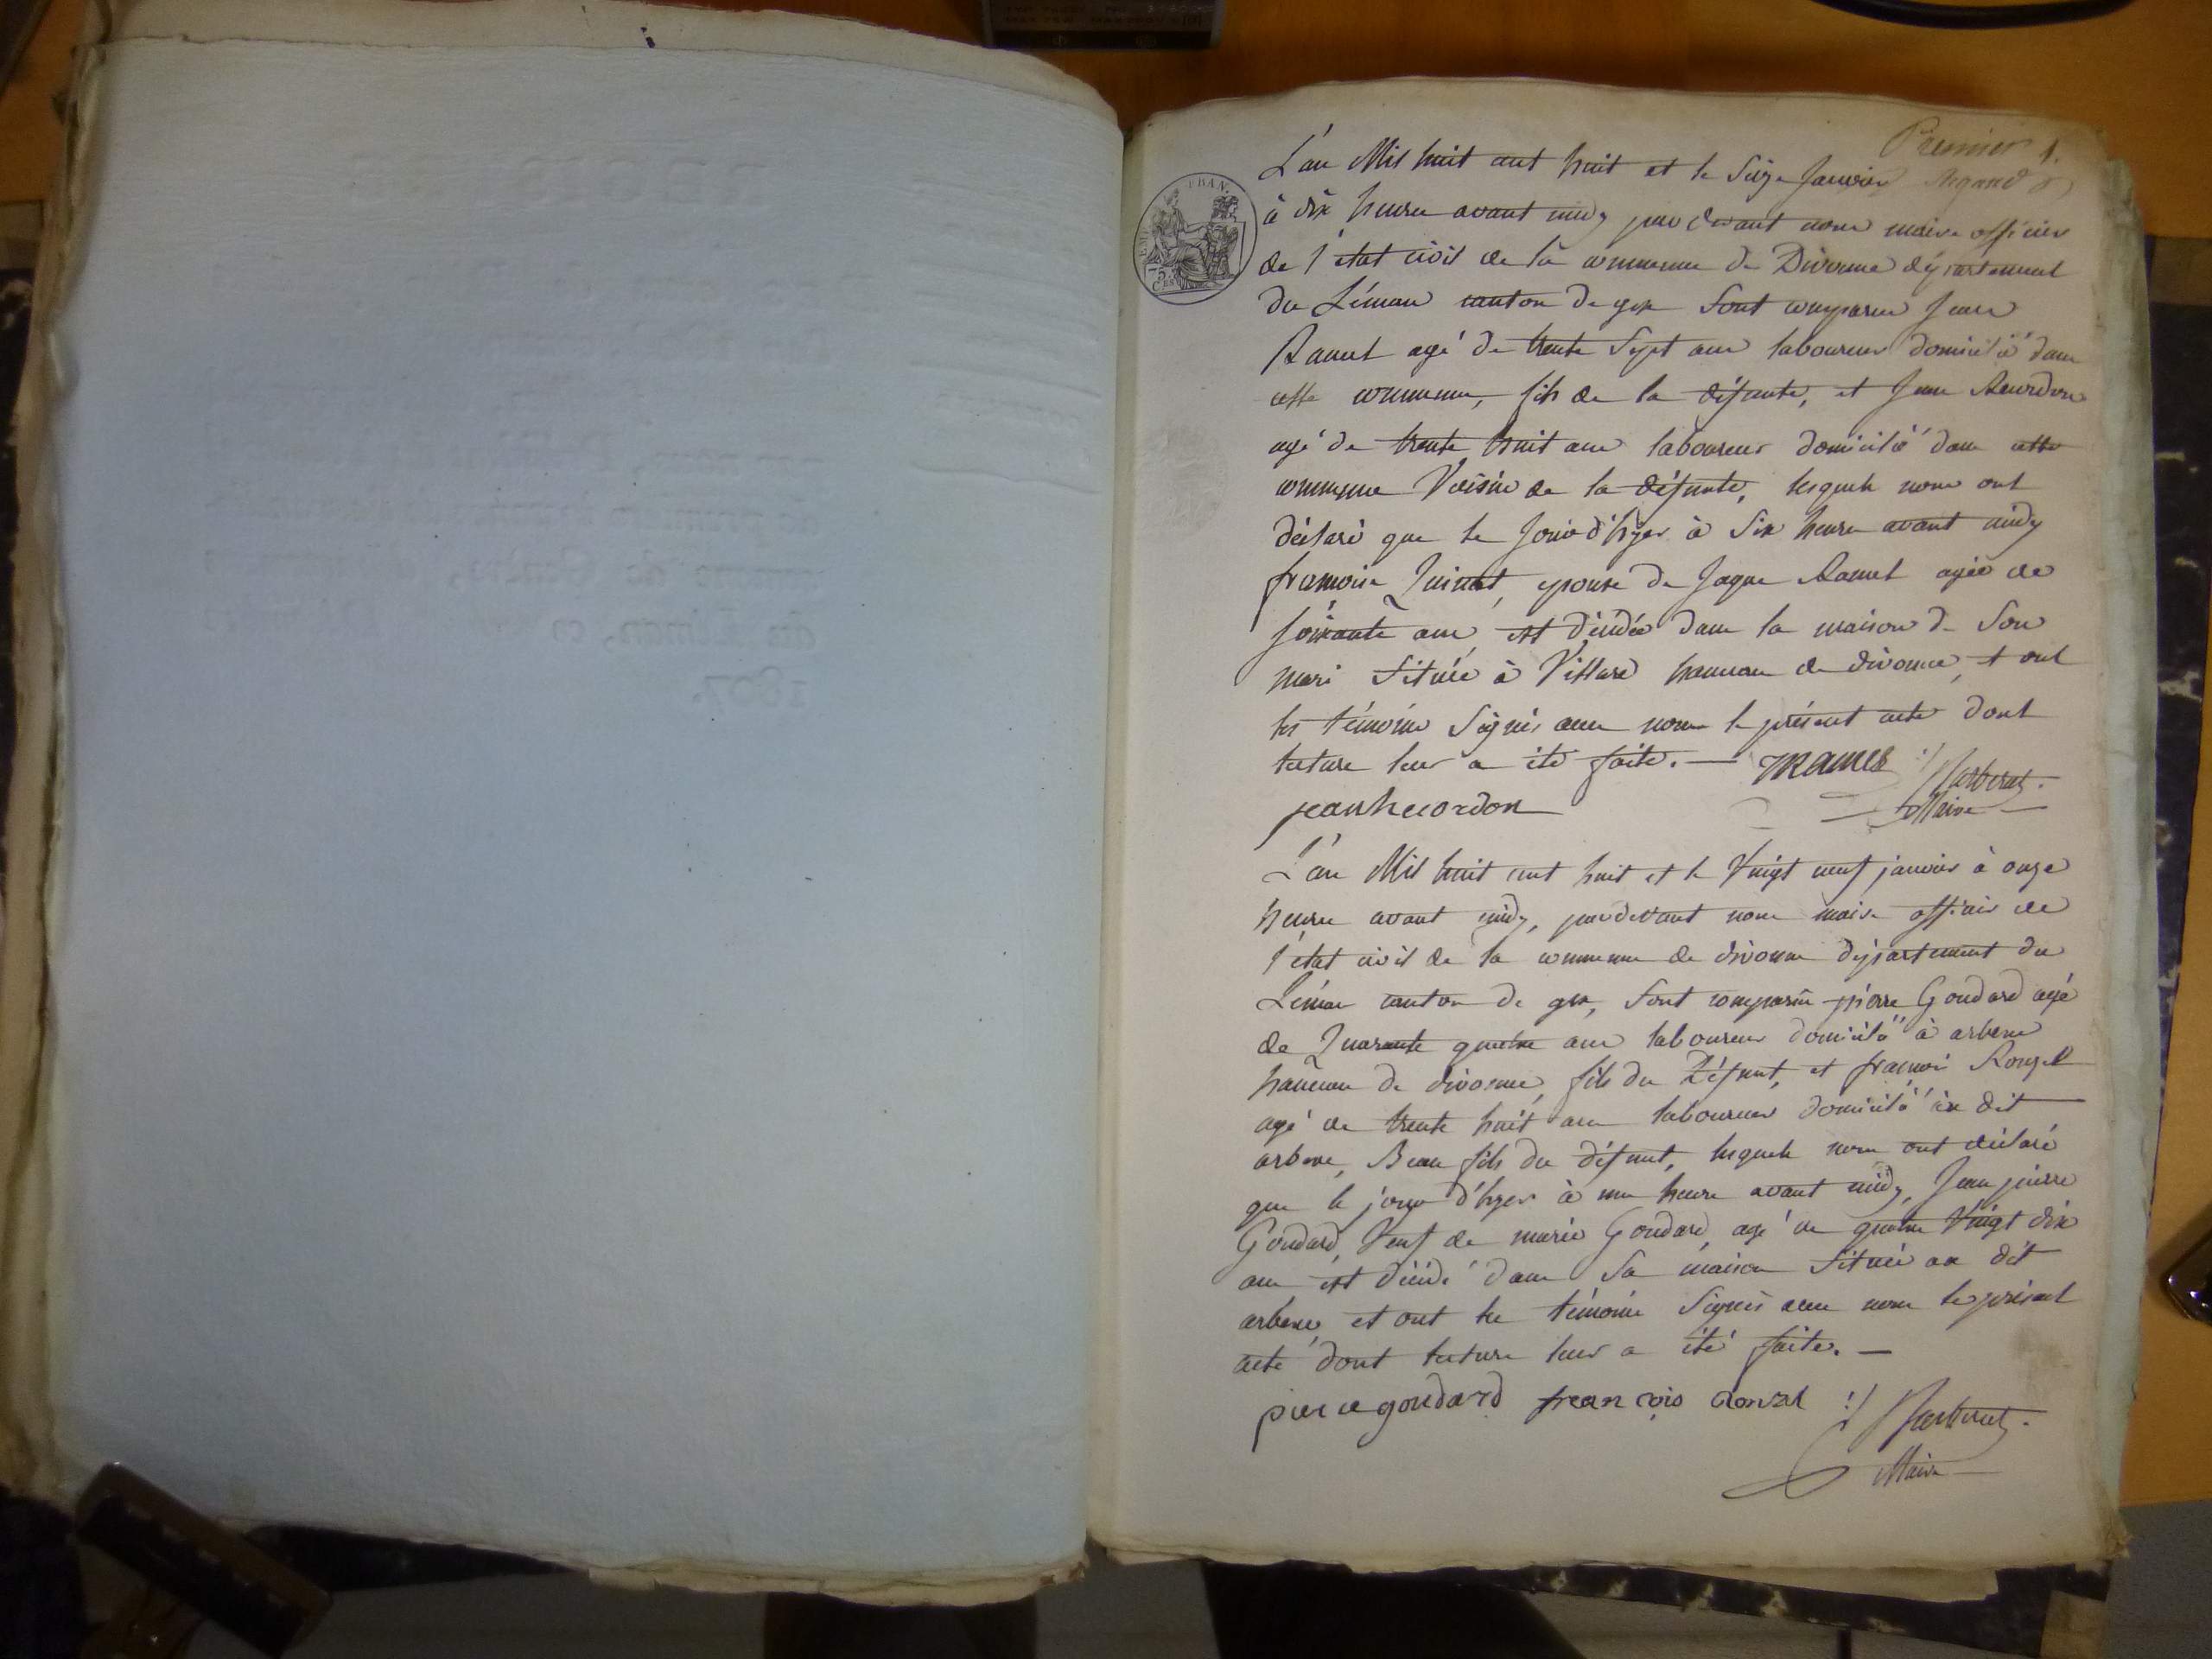 Premier 1.
L'an Mil huit cent huit et le Seize Janvier
à dix heures avant midy par devant nous maire officier
de l'etat civil de la commune de Divonne département
du Léman canton de gex Sont comparus
Ramel agé de trente Sept ans laboureur domicilié dans
cette commune, fils de la défunte, et Jean Recordon
agé de trente huit ans laboureur domicilié dans cette
commune Voisin de la défunte, lesquels nous ont
déclaré que le Jour d'hyer à Six heures avant midy
françoise epouse de Jaque Ramel agée de
Soixante ans, est décédée dans la maison de Son
mari Située à Villard hameau de divonne, et ont
les témoins Signés avec nous le présent acte dont
lecture leur a été faite. —
jean Recordon Maire
L'an Mil huit cent huit et le Vingt neuf janvier à onze
heures avant midy, pardevant nous maire officier de
l'etat civil de la commune de divonne département du
Léman canton de gex, Sont comparus pierre Goudard agé
de Quarante quatre ans laboureur domicilié à arbere
hameau de divonne, fils du Défunt, et françois Ronzel
agé de trente huit ans laboureur domicilié au dit
arbere, Beau fils du défunt, lesquels nous ont déclaré
que le jour d'hyer à une heure avant midy, Jean pierre
Goudard, Veuf de marie Goudard, agé de quatre Vingt dix
ans est décédé dans Sa maison Située au dit
arbere, et ont les témoins Signés avec nous le présent
acte dont lecture leur a été faite. —
pierre goudard françois Ronzel
Maire
EMP. FRAN.
75 CEN